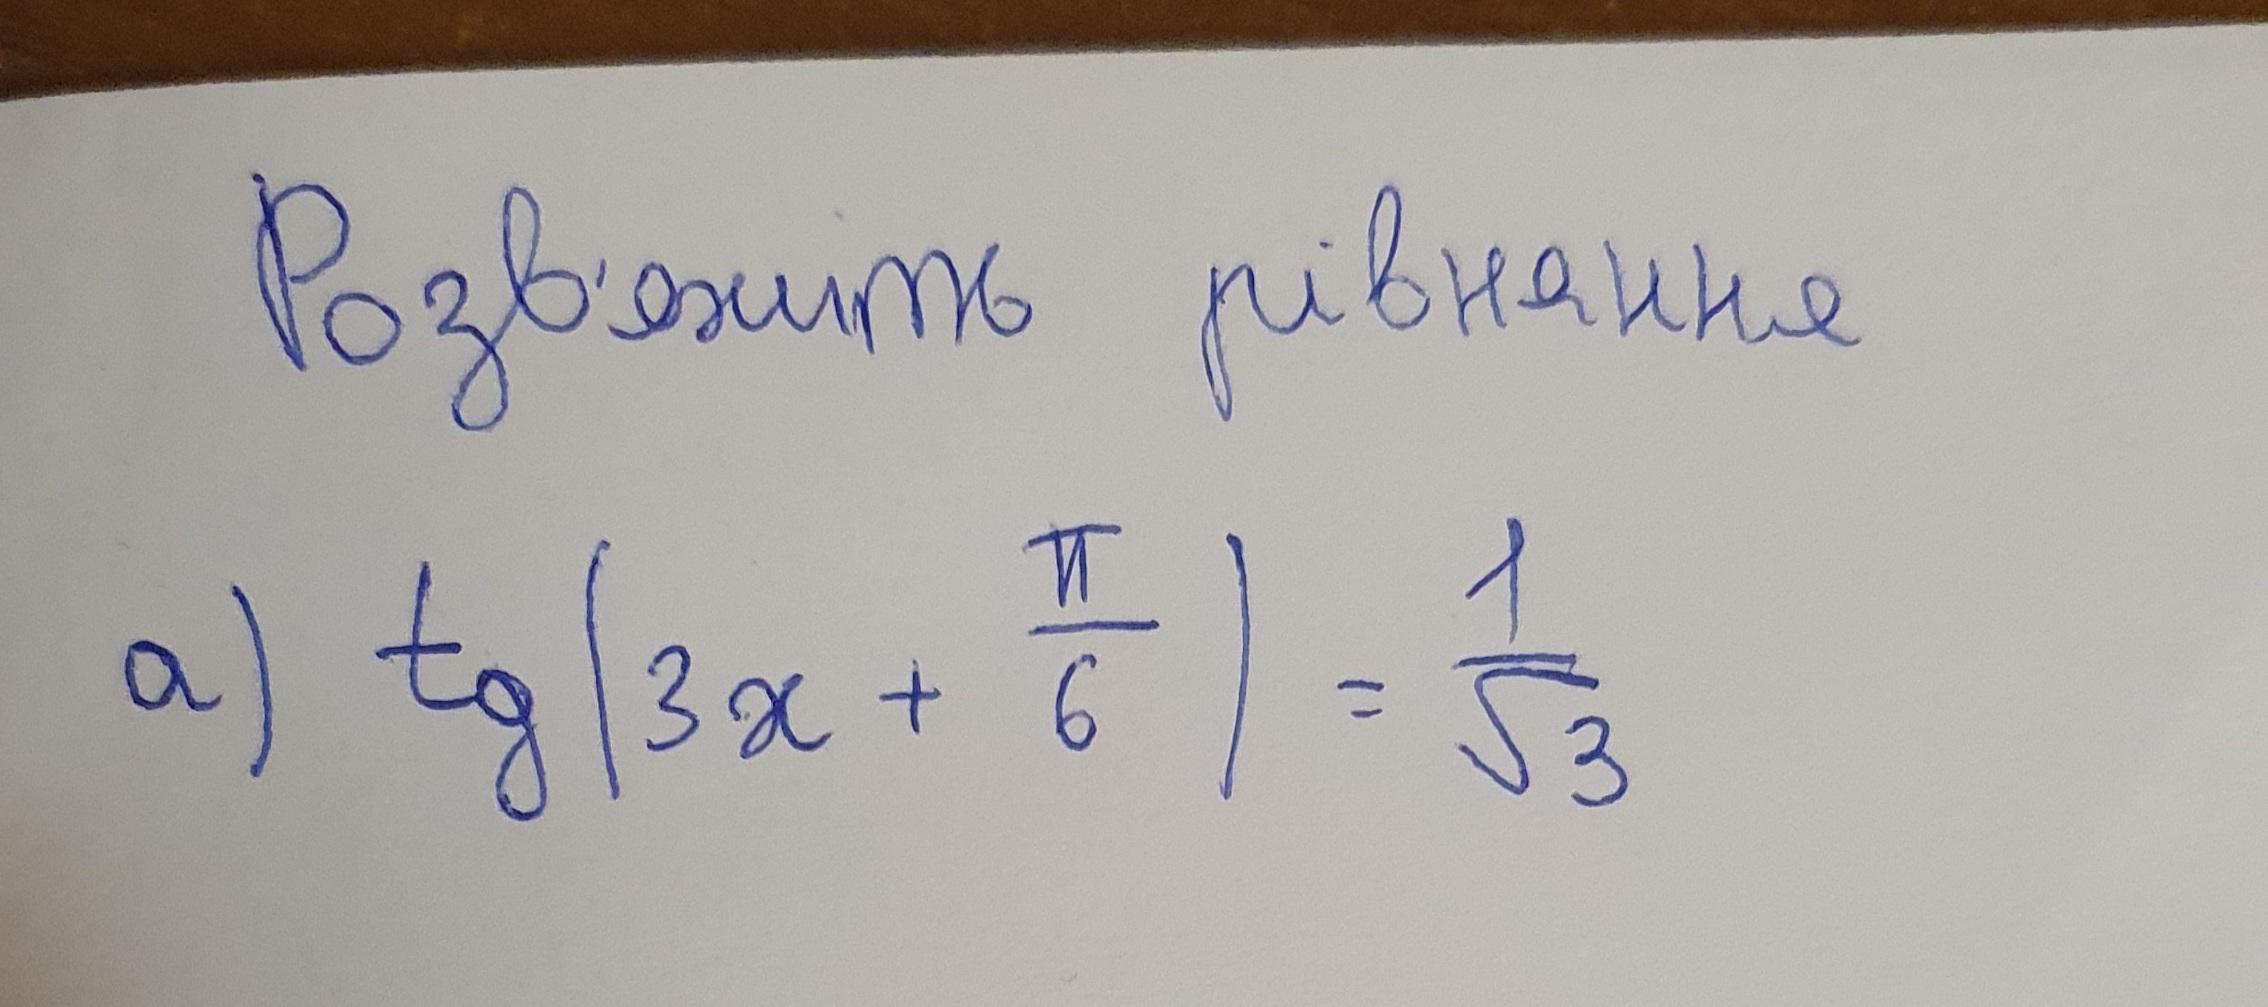 Розв'яжіть рівняння
а) tg(3x + π/6) = 1/√3